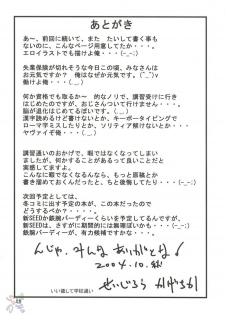 あとがき
あー、前回に続いて、また たいして書く事も
ないのに、こんなページ用意してたか・・・。
エロイラストでも描けよ俺・・・(-_-;)
失業保険が切れそうな今日この頃、みなさんは
お元気ですか？ 俺はなぜか元気です。(^_^)v
働けよ俺・・・(._.)
何か資格でも取るかー 的なノリで、講習受けに行き
はじめたのですが、おじさんついて行けません・・・。
脳が退化はじめてるっぽいです・・・。(._.)
漢字読めるけど書けないとか、キーボータイピングで
ローマ字ミスしたりとか、ソリティア解けないとか・・・
ヤヴァイぞ俺・・・(._.)
講習通いのおかげで、暇ではなくなってしまい
ましたが、何かすることがあるって良いことだと
実感しましたよ。
こんなに暇でなくなるんなら、もっと原稿とか
書き溜めておくんだったと、ちと後悔してたり・・・(-_-;)
次回予定としては、
冬コミに出す予定の本が、この本だったので
どうするべか？・・・。
新SEEDか鉄腕バーディーくらいを予定してるんですが、
新SEEDは、さすがに到底間に合わないので・・・(-_-;)
鉄腕バーディーが、有力候補ですかな・・・。
んじゃ、みんな ありがとな！
2004.10.
せいじろう かげろう
いい歳して学校通い